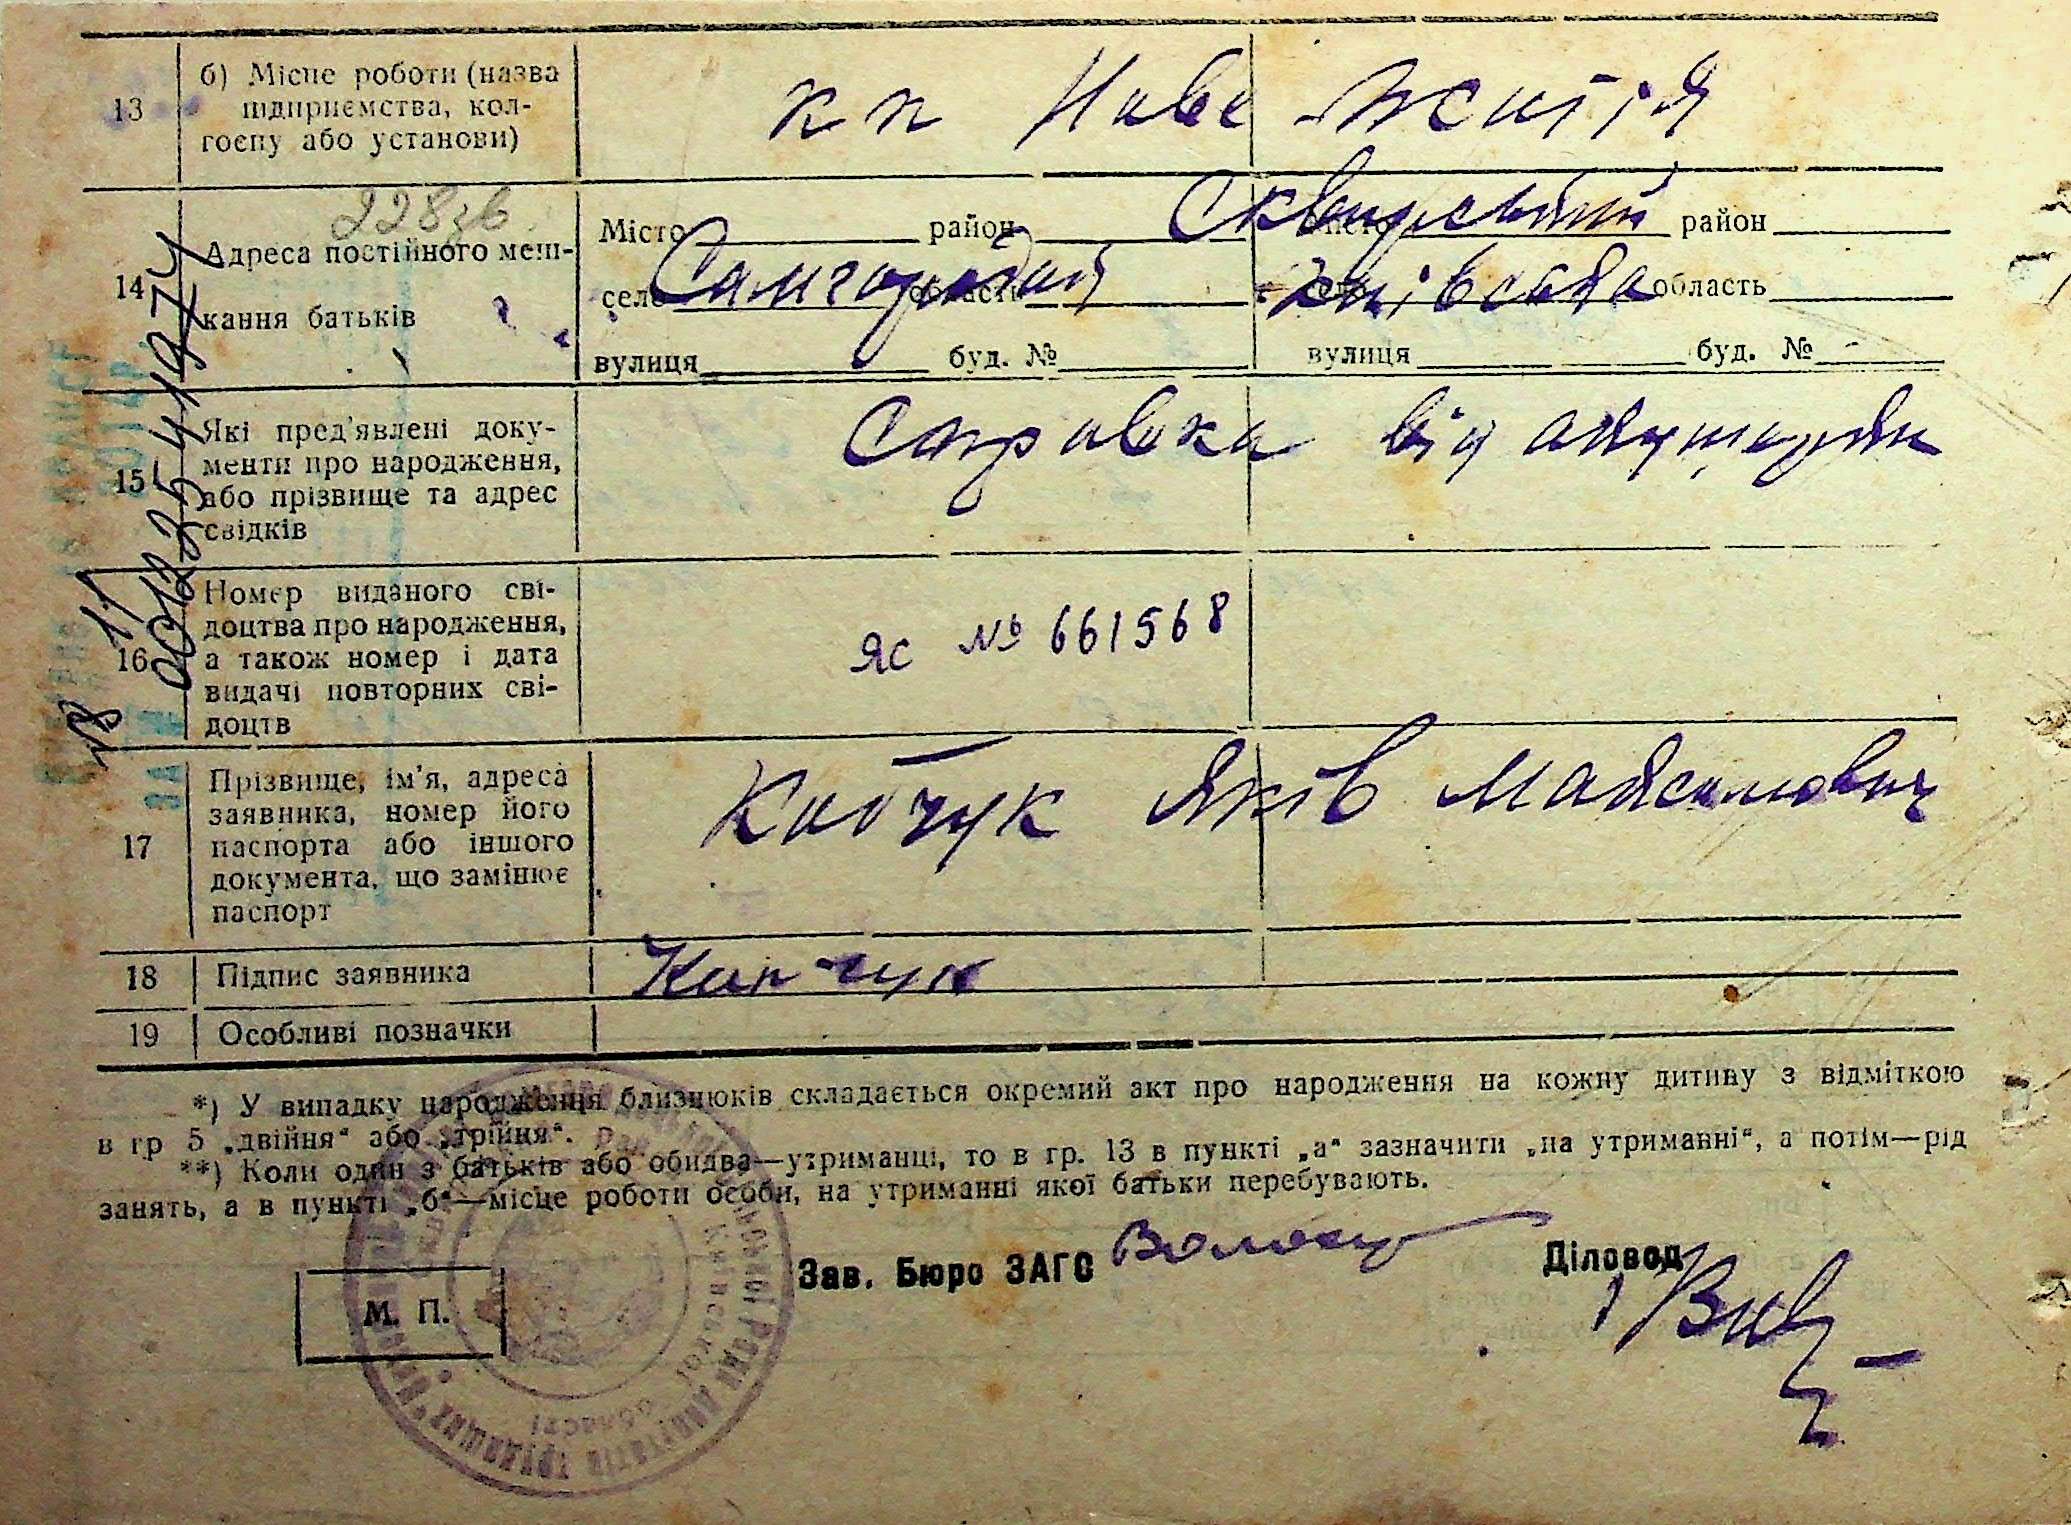 13 б) Місце роботи (назва
підприємства, кол-
госпу або установи)
кп Нове Життя
228зв
14 Адреса постійного меш-
кання батьків
Місто район Сквирський місто район
село Самгородок область село Київська область
вулиця буд. № вулиця буд. №
15 Які пред'явлені доку-
менти про народження,
або прізвище та адрес
свідків
Справка від акушерки
16 Номер виданого сві-
доцтва про народження,
а також номер і дата
видачі повторних сві-
доцтв
ЯС № 661568
17 Прізвище, ім'я, адреса
заявника, номер його
паспорта або іншого
документа, що замінює
паспорт
Яків Максимович
18 Підпис заявника
19 Особливі позначки
*) У випадку народження близнюків складається окремий акт про народження на кожну дитину з відміткою
в гр 5 „двійня“ або „трійня“.
**) Коли один з батьків або обидва—утриманці, то в гр. 13 в пункті „а“ зазначити „на утриманні“, а потім—рід
занять, а в пункті „б“—місце роботи особи, на утриманні якої батьки перебувають.
Зав. Бюро ЗАГС
Діловод
М. П.
Київської
області